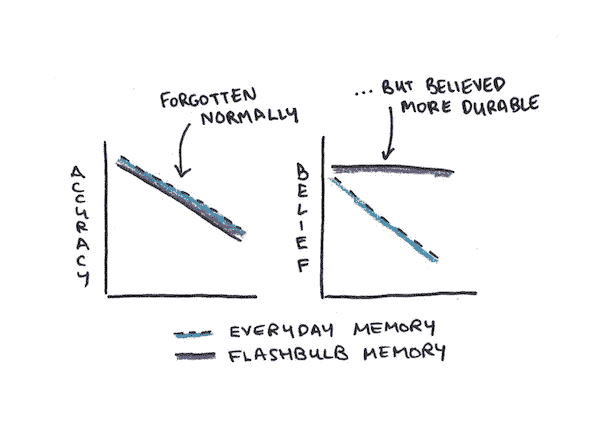 FORGOTTEN
NORMALLY
... BUT BELIEVED
MORE DURABLE
ACCURACY
BELIEF
EVERYDAY MEMORY
FLASHBULB MEMORY